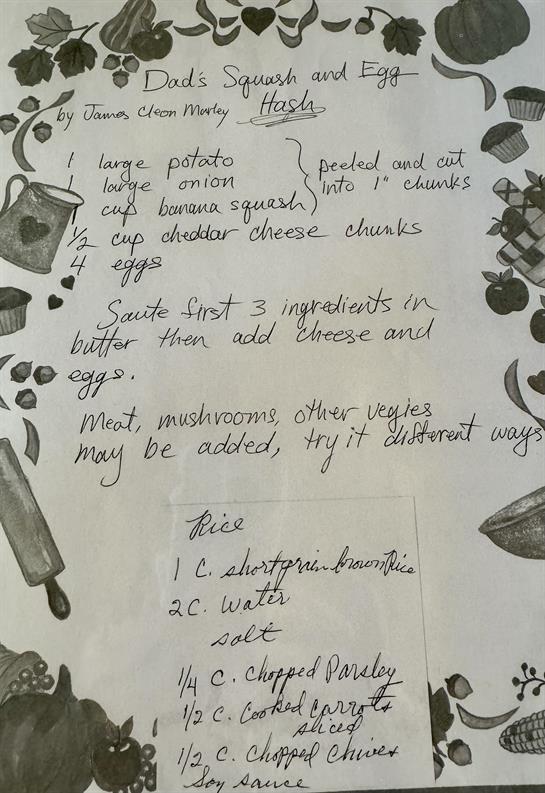 Dad's Squash and Egg
Hash
by James Cleon Marley
1 large potato
1 large onion
1 cup banana squash
peeled and cut
into 1" chunks
1/2 cup cheddar cheese chunks
4 eggs
Saute first 3 ingredients in
butter then add cheese and
eggs.
Meat, mushrooms, other vegies
may be added, try it different ways
Rice
1 C. shortgrain brown Rice
2 C. Water
salt
1/4 C. Chopped Parsley
1/2 C. Cooked Carrots
sliced
1/2 C. Chopped Chives
Soy sauce